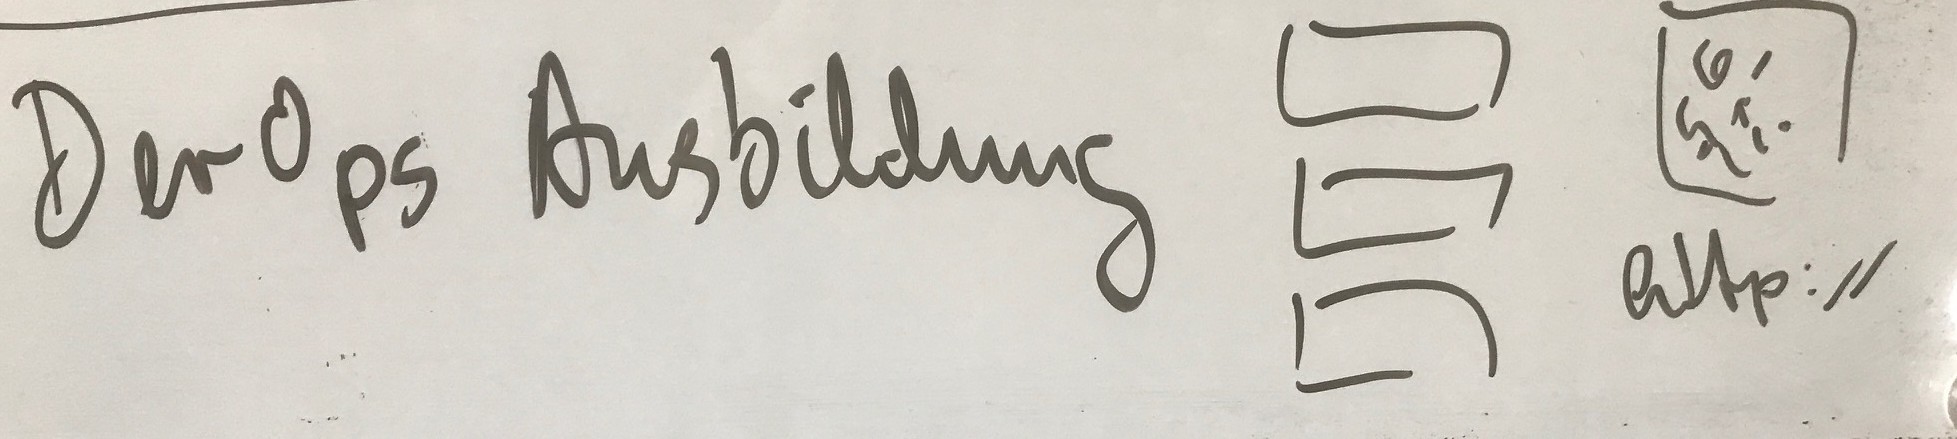 DevOps Ausbildung
http://